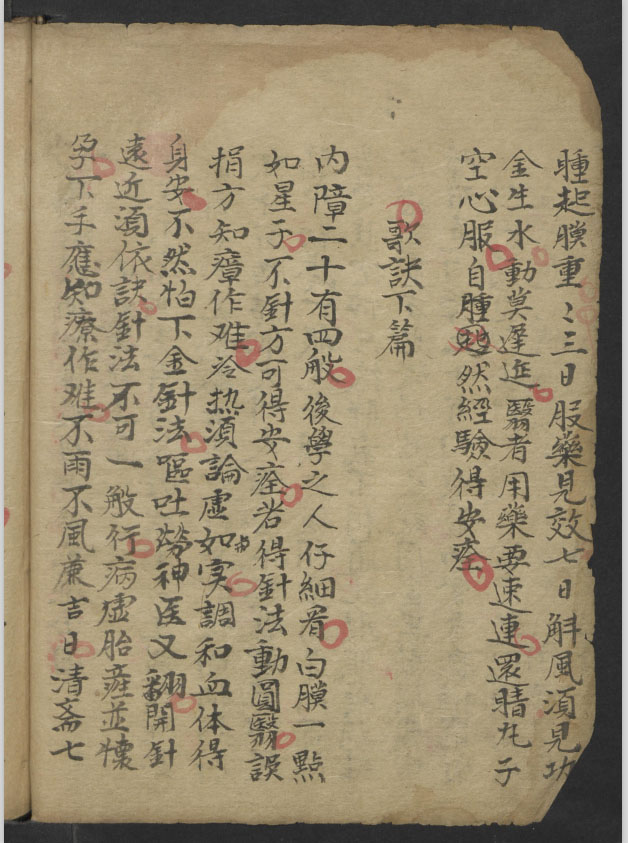 腫起膜重〻三日服藥見效七日斛風須見功
金生水動莫遲延醫者用藥要速連還睛丸子
空心服自腫 然經驗得安痊
歌訣下篇
内障二十有四般後學之人仔細看白膜一點
如星子不針方可得安痊若得針法動圓翳誤
損方知瘴作难冷热須論虛如实調和血体得
身安不然怕下金針法嘔吐勞神医又翻開針
遠近須依訣針法不可一般行病虛胎產並懷
孕下手應知療作难不雨不風蕪吉日清斋七